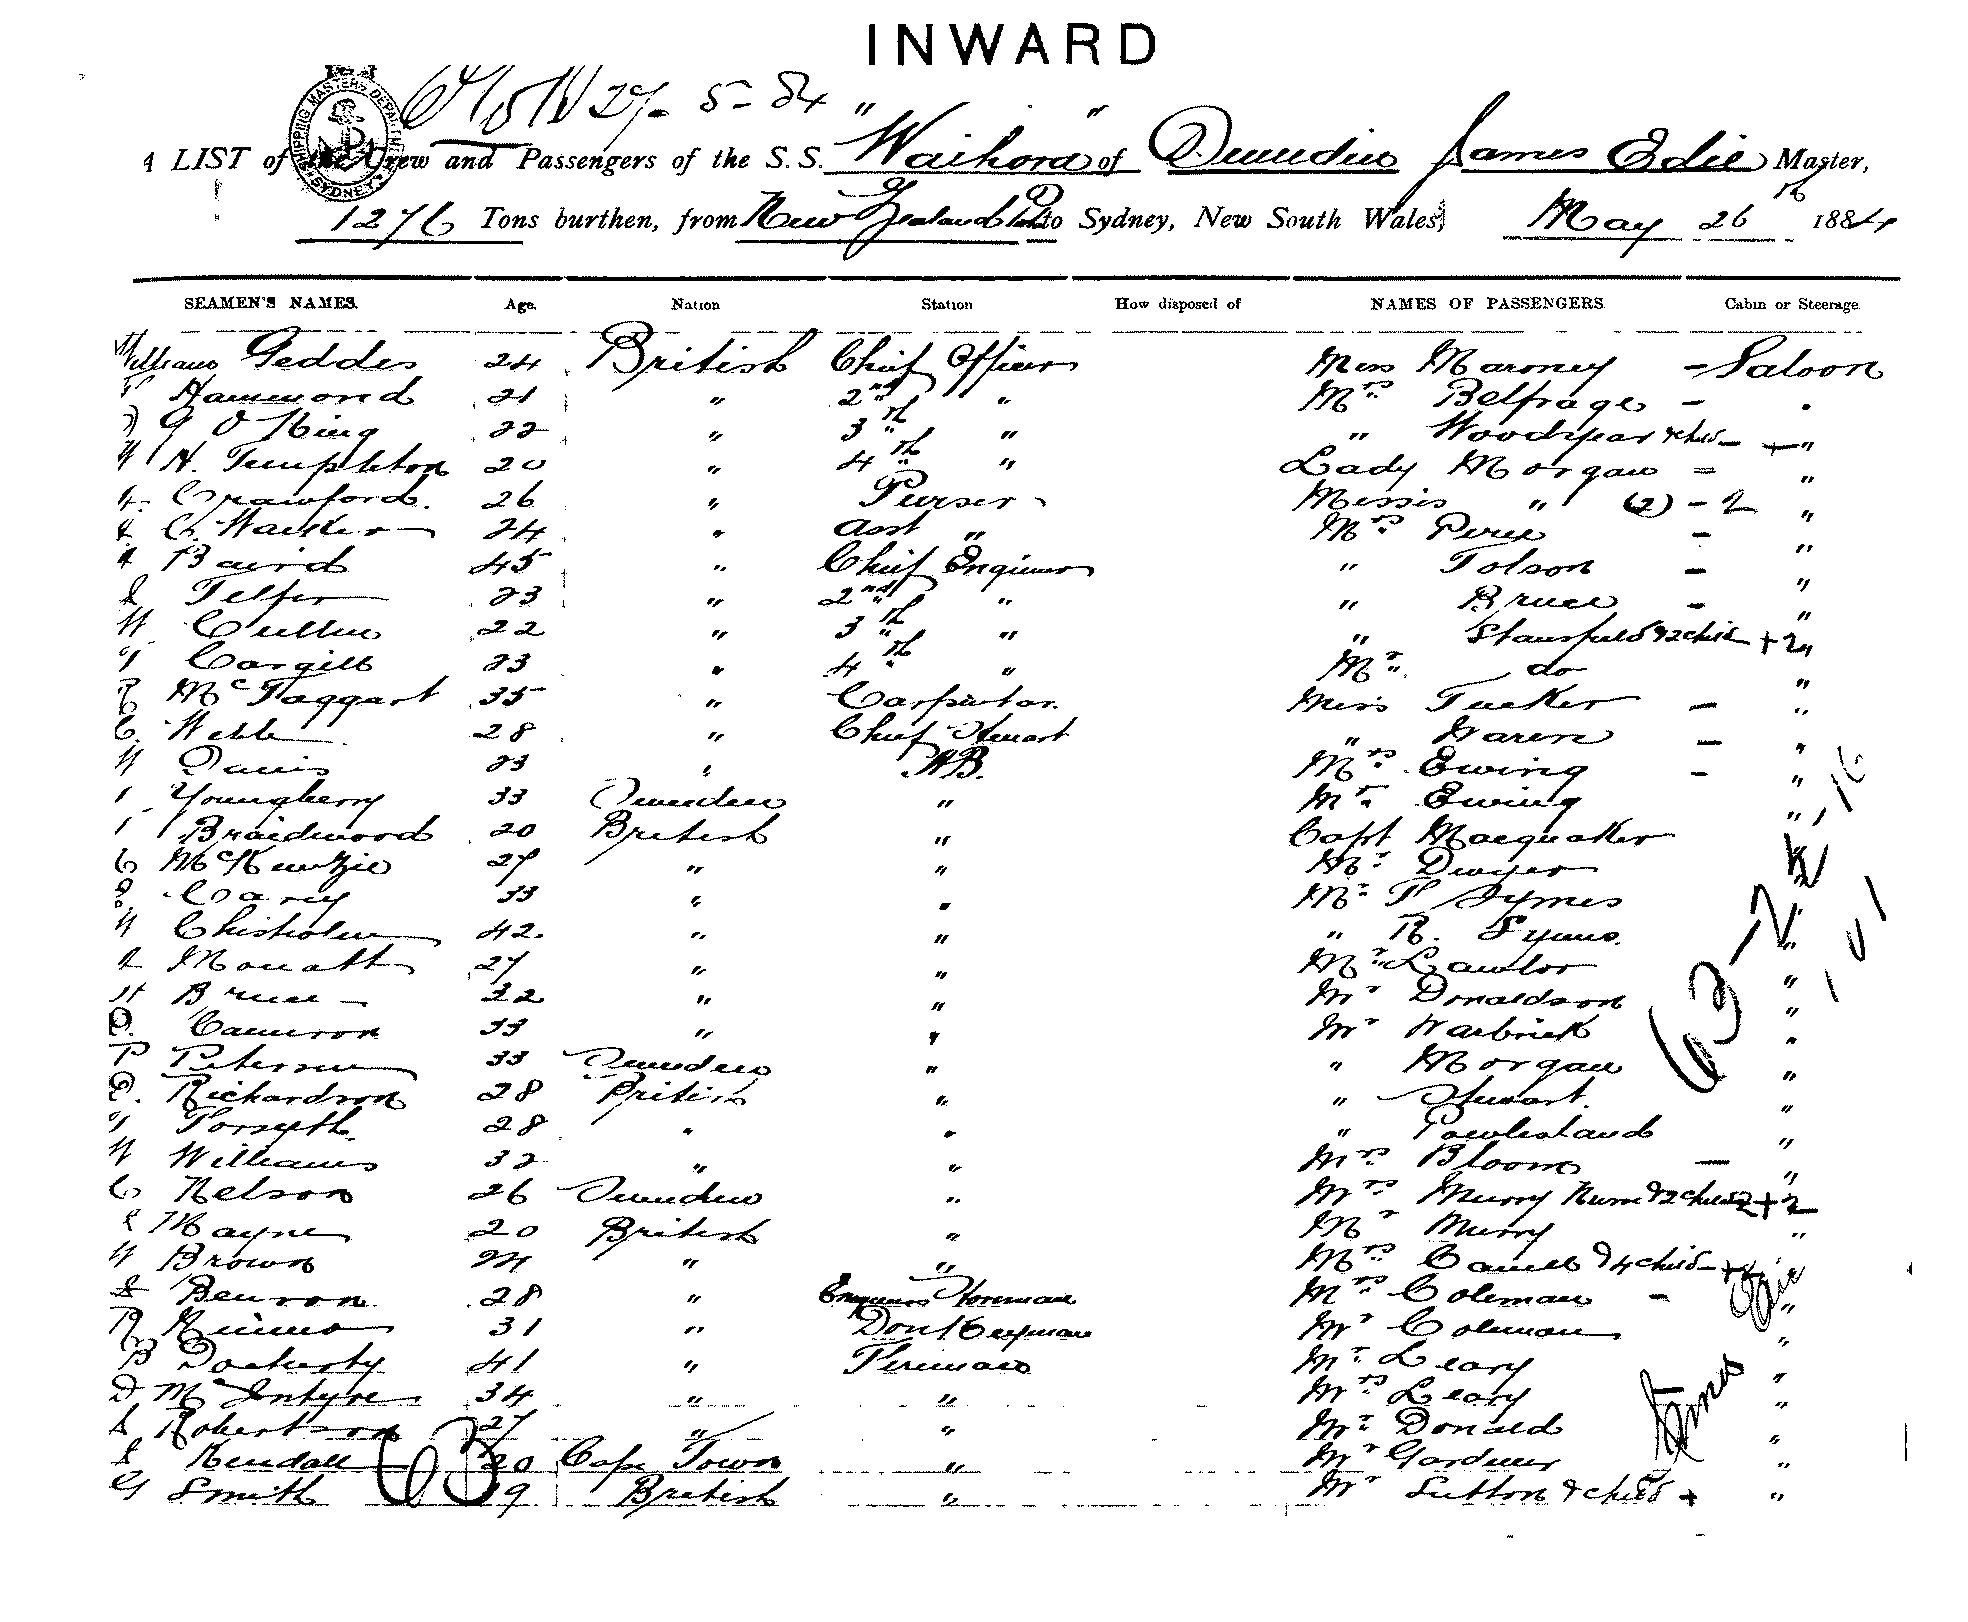 INWARD
27- 5- 84
A LIST of the Crew and Passengers of the S.S. "Waihora" of Dunedin James Edie Master,
1276 Tons burthen, from New Zealand to Sydney, New South Wales, May 26th 1884
SEAMEN'S NAMES. Age. Nation Station How disposed of NAMES OF PASSENGERS Cabin or Steerage
William Geddes 24 British Chief Officer Miss Maroney - Saloon
Hammond 21 " 2nd " Mrs Belfrage - "
G O King 22 " 3rd " " Woodspear & child - + "
H. Templeton 20 " 4th " Lady Morgan - "
Crawford. 26 " Purser Misses " (2) - 2 "
C. Walker 24 " Asst " Mrs Peree - "
Baird 45 " Chief Engineer " Tolson - "
Telfer 23 " 2nd " " Bruce - "
W Cullen 22 " 3rd " " Stansfield & 2 child + 2 "
Cargill 23 " 4th " Mr. do "
McTaggart 35 " Carpenter Miss Tucker - "
C. Webb 28 " Chief Stewart " Waren - "
Davis 23 " AB. Mrs Ewing - "
Youngberry 33 Sweeden " Mr Ewing "
Braidwood 20 British " Capt Macquaker "
C McKenzie 27 " " Mr Dwyer "
Carey 33 " " Mr T Symes "
Chisholm 42 " " " R. Symes "
Monatt 27 " " Mr Lawlor "
Bruce 32 " " Mr Donaldson "
D. Cameron 33 " " Mr Warbrick "
P Petersen 33 Sweeden " " Morgan "
D. Richardson 28 British " " Stewart. "
Forsyth 28 " " " Powlesland "
W Williams 32 " " Mrs Bloom - "
C Nelson 26 Sweeden " Mrs Murry Nurse & 2 child 2 + 2
Mayne 20 British " Mr Murry "
Brown 24 " " Mrs & 4 child - +
Benson 28 " Mrs Coleman - "
R Nimmo 31 " Donkeyman Mr Coleman "
B Docherty 41 " Fireman Mr Leary "
D McIntyre 34 " " Mrs Leary "
Robertson 27 " " Mr Donald "
Kendall 20 Cape Town " Mr Gardner "
G Smith 19 British " Mr Sutton & child + "
63
63 - 24 - 16
101